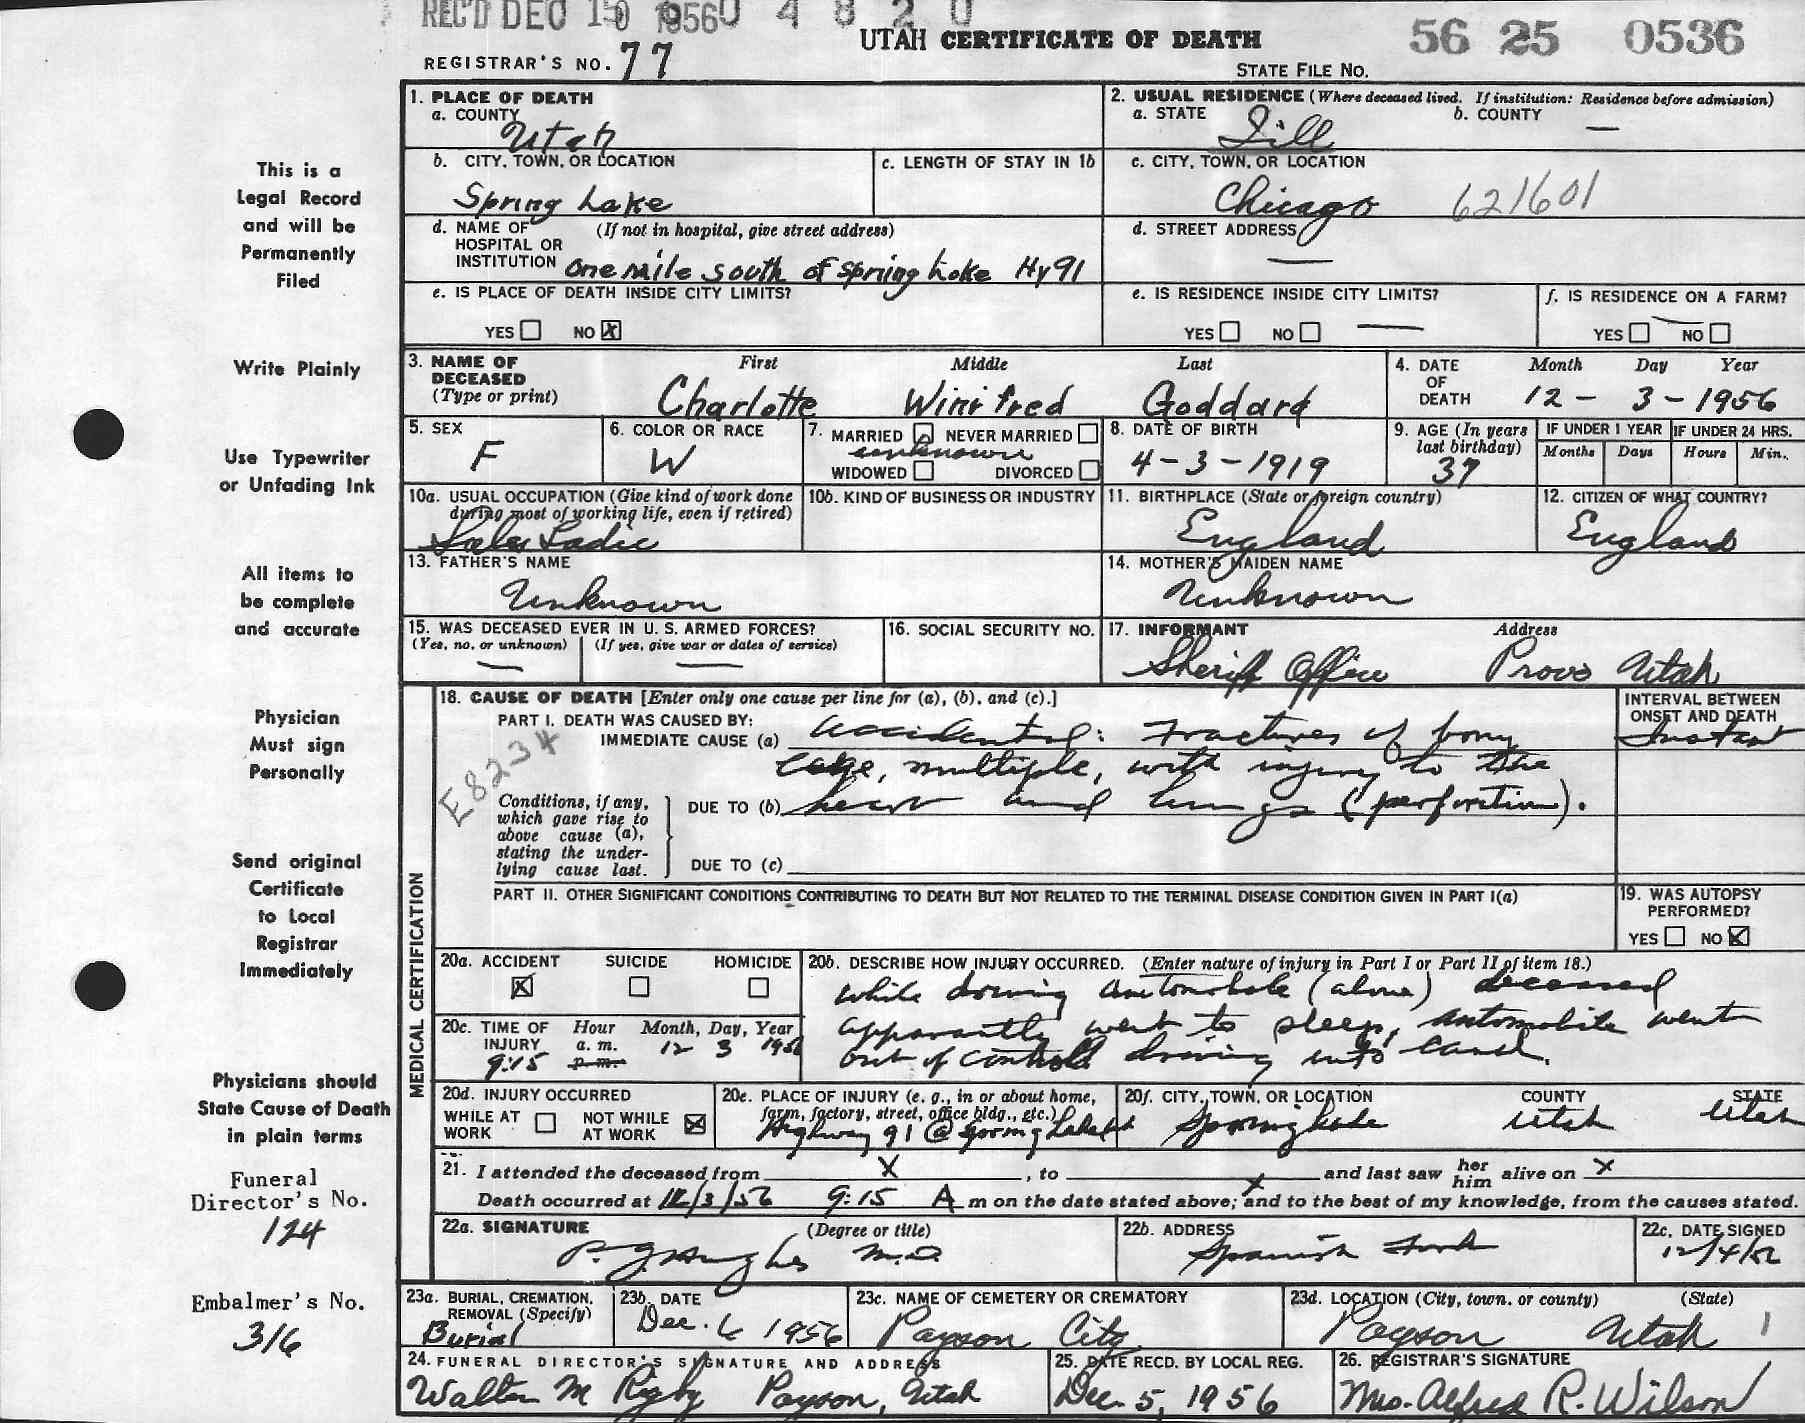 REC'D DEC 10 1956 0 4 8 2 0
UTAH CERTIFICATE OF DEATH
56 25 0536
REGISTRAR'S NO. 77
STATE FILE NO.
This is a
Legal Record
and will be
Permanently
Filed
Write Plainly
Use Typewriter
or Unfading Ink
All items to
be complete
and accurate
Physician
Must sign
Personally
Send original
Certificate
to Local
Registrar
Immediately
Physicians should
State Cause of Death
in plain terms
Funeral
Director's No.
124
Embalmer's No.
316
1. PLACE OF DEATH
a. COUNTY
Utah
2. USUAL RESIDENCE (Where deceased lived. If institution: Residence before admission)
a. STATE b. COUNTY
Ill —
b. CITY, TOWN, OR LOCATION
Spring Lake
c. LENGTH OF STAY IN 1b
c. CITY, TOWN, OR LOCATION
Chicago 621601
d. NAME OF (If not in hospital, give street address)
HOSPITAL OR
INSTITUTION one mile south of Spring Lake Hy 91
d. STREET ADDRESS
—
e. IS PLACE OF DEATH INSIDE CITY LIMITS?
YES NO X
e. IS RESIDENCE INSIDE CITY LIMITS?
YES NO —
f. IS RESIDENCE ON A FARM?
YES — NO
3. NAME OF DECEASED (Type or print)
First Middle Last
Charlotte Winifred Goddard
4. DATE OF DEATH
Month Day Year
12 - 3 - 1956
5. SEX
F
6. COLOR OR RACE
W
7. MARRIED NEVER MARRIED
unknown
WIDOWED DIVORCED
8. DATE OF BIRTH
4-3-1919
9. AGE (In years last birthday)
37
IF UNDER 1 YEAR IF UNDER 24 HRS.
Months Days Hours Min.
10a. USUAL OCCUPATION (Give kind of work done during most of working life, even if retired)
Sales Ladie
10b. KIND OF BUSINESS OR INDUSTRY
11. BIRTHPLACE (State or foreign country)
England
12. CITIZEN OF WHAT COUNTRY?
England
13. FATHER'S NAME
Unknown
14. MOTHER'S MAIDEN NAME
Unknown
15. WAS DECEASED EVER IN U. S. ARMED FORCES?
(Yes, no, or unknown) (If yes, give war or dates of service)
— —
16. SOCIAL SECURITY NO.
17. INFORMANT Address
Sheriff Office Provo Utah
MEDICAL CERTIFICATION
18. CAUSE OF DEATH [Enter only one cause per line for (a), (b), and (c).]
INTERVAL BETWEEN ONSET AND DEATH
Instant
PART I. DEATH WAS CAUSED BY:
IMMEDIATE CAUSE (a) Accidental: Fractures of bony
cage, multiple, with injury to the
E8234
Conditions, if any, which gave rise to above cause (a), stating the underlying cause last.
DUE TO (b) heart and lungs (perforation).
DUE TO (c)
PART II. OTHER SIGNIFICANT CONDITIONS CONTRIBUTING TO DEATH BUT NOT RELATED TO THE TERMINAL DISEASE CONDITION GIVEN IN PART I(a)
19. WAS AUTOPSY PERFORMED?
YES NO X
20a. ACCIDENT SUICIDE HOMICIDE
X
20b. DESCRIBE HOW INJURY OCCURRED. (Enter nature of injury in Part I or Part II of item 18.)
While driving automobile (alone) deceased
apparantly went to sleep, automobile went
out of controll driving into canal.
20c. TIME OF INJURY Hour Month, Day, Year
a. m.
9:15 p. m. 12 3 1956
20d. INJURY OCCURRED
WHILE AT WORK NOT WHILE AT WORK X
20e. PLACE OF INJURY (e. g., in or about home, farm, factory, street, office bldg., etc.)
Highway 91 @ Spring Lake Ut
20f. CITY, TOWN, OR LOCATION COUNTY STATE
Spring Lake Utah Utah
21. I attended the deceased from X , to X and last saw her him alive on X
Death occurred at 12/3/56 9:15 A m on the date stated above; and to the best of my knowledge, from the causes stated.
22a. SIGNATURE (Degree or title)
P. J. Hughes M.D.
22b. ADDRESS
Spanish Fork
22c. DATE SIGNED
12/4/56
23a. BURIAL, CREMATION, REMOVAL (Specify)
Burial
23b. DATE
Dec. 6 1956
23c. NAME OF CEMETERY OR CREMATORY
Payson City
23d. LOCATION (City, town, or county) (State)
Payson Utah 1
24. FUNERAL DIRECTOR'S SIGNATURE AND ADDRESS
Walter M Rigby Payson, Utah
25. DATE RECD. BY LOCAL REG.
Dec. 5, 1956
26. REGISTRAR'S SIGNATURE
Mrs. Alfred R. Wilson